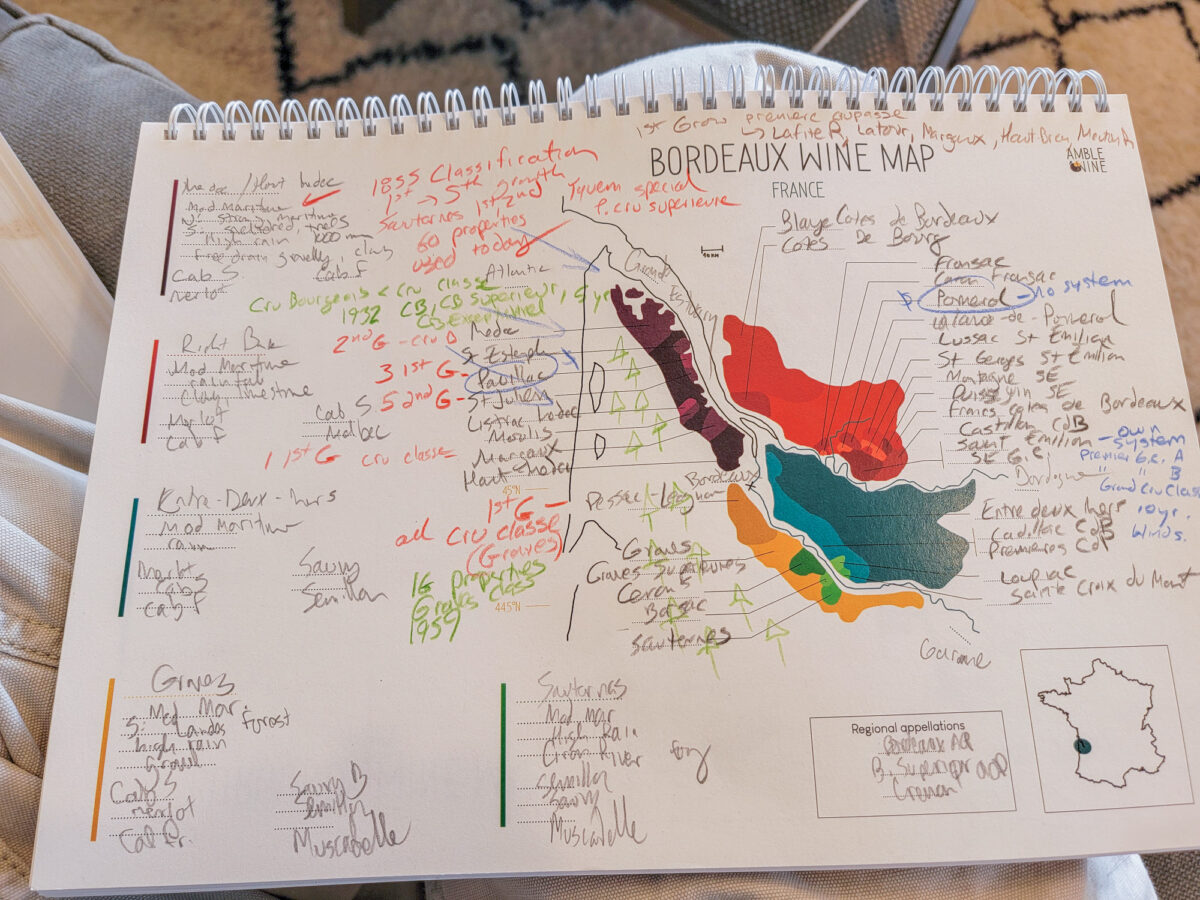 1st Grow premiere
↳ Lafite R, Latour, Margaux, Haut Brion, Mouton R
BORDEAUX WINE MAP
FRANCE
AMBLE WINE
Medoc / Haut Medoc
Mod Maritime
High rain 1000 mm
Free drain gravelly, clay
Cab S. Cab F
Merlot
1855 Classification
1st → 5th growth
Sauternes 1st, 2nd
60 properties
used today
Yquem special
P. cru superieure
Cru Bourgeois < Cru classe
1932 CB, CB Superieur, 5 yr
CB Exceptionnel
Atlantic
Gironde
Estuary
10 KM
Blaye Cotes de Bordeaux
Cotes De Bourg
Fronsac
Canon Fronsac
Pomerol - No system
Lalande-de-Pomerol
Lussac St Emilion
St Georges St Emilion
Montagne SE
Puisseguin SE
Francs Cotes de Bordeaux
Castillon CdB
Saint Emilion - own system
SE G.C.
Premier G.C. A
" " B
Grand Cru Classe
10yr.
Winds.
Dordogne
Entre deux Mers
Cadillac CdB
Premieres CdB
Loupiac
Sainte Croix du Mont
Garonne
Right Bank
Mod Maritime
Clay, limestone
Merlot
Cab F
Cab S
Malbec
2nd G - cru
3 1st G -
5 2nd G -
1 1st G cru classe
Medoc
St Estephe
Pauillac
St Julien
Listrac Medoc
Moulis
Margaux
Haut Medoc
45°N
Bordeaux
Pessac-Leognan
1st G -
all Cru Classe
(Graves)
16 properties
Graves class
1959
44.5°N
Graves
Graves Superieures
Ceron S
Barsac
Sauternes
Entre-Deux-Mers
Mod Maritime
rain
Merlot
Cab S
Cab F
Sauvy
Semillon
Graves
Mod Mar.
S: Landes Forrest
high rain
Gravel
Cab S
Merlot
Cab Fr.
Sauvy B
Semillon
Muscabelle
Sauternes
Mod Mar
High Rain
Ciron River fog
Semillon
Sauvy
Muscadelle
Regional appellations
Bordeaux AOP
B. Superior AOP
Creman